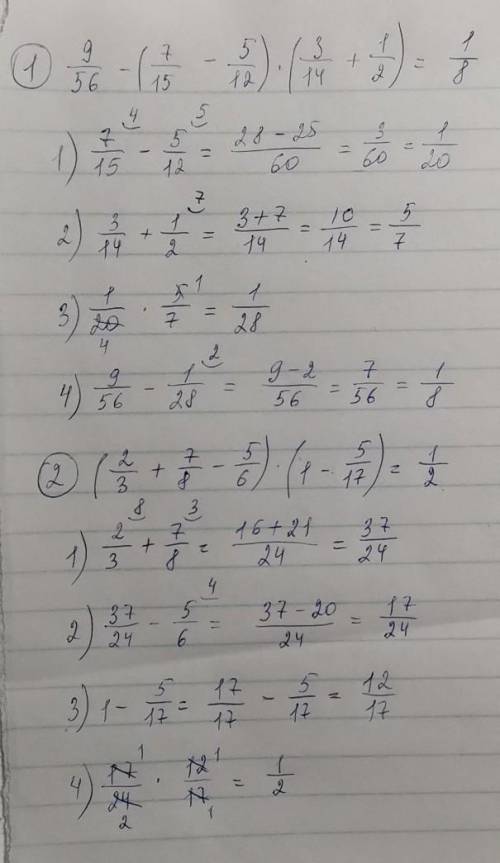 ① 9/56 - (7/15 - 5/12) · (3/14 + 1/2) = 1/8
1) 7/15 ⁴ - 5/12 ⁵ = (28 - 25)/60 = 3/60 = 1/20
2) 3/14 + 1/2 ⁷ = (3+7)/14 = 10/14 = 5/7
3) 1/20 4 · 5/7 1 = 1/28
4) 9/56 - 1/28 ² = (9-2)/56 = 7/56 = 1/8
② (2/3 + 7/8 - 5/6) · (1 - 5/17) = 1/2
1) 2/3 ⁸ + 7/8 ³ = (16+21)/24 = 37/24
2) 37/24 - 5/6 ⁴ = (37-20)/24 = 17/24
3) 1 - 5/17 = 17/17 - 5/17 = 12/17
4) 17/24 1 2 · 12/17 1 1 = 1/2